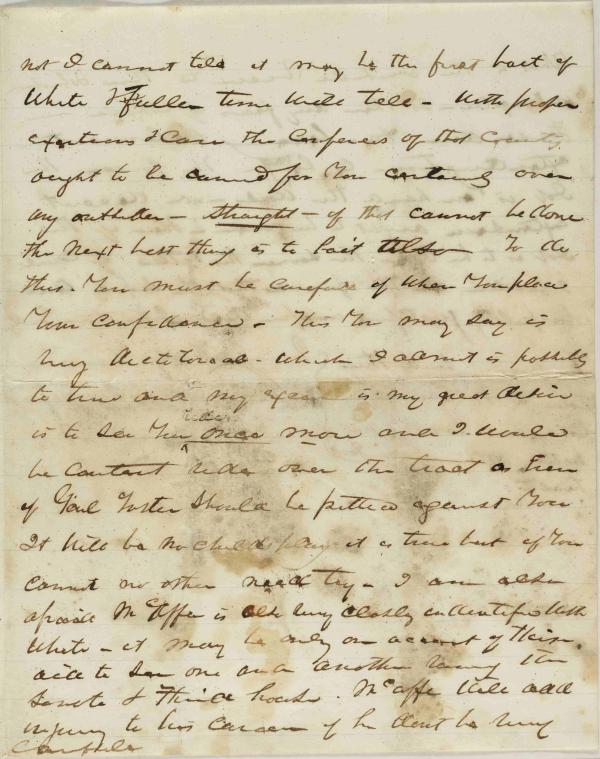 not I cannot tell it may be the first boat of
White & Fuller time will tell - With proper
exertions I can the Conferees of that County
ought to be carried for You certainly over
any outsider - straight - if that cannot be done
the next best thing is to bait also To do
this. You must be careful of whom You place
Your confidence - This You may say is
very dictitorial - which I admit is possibly
to true and my is my great desire
is to see You ride once more and I would
be content ride over the track as Even
if Gail Foster should be pitted against You
It will be no childs play it is true but if You
cannot no other need try - I am also
afraid McAffee is very closely indentified with
White - it may be only on account of their
aid to see one and another the
Senate & Third house. McAffe will add
injury to his career if he dont be very
Careful